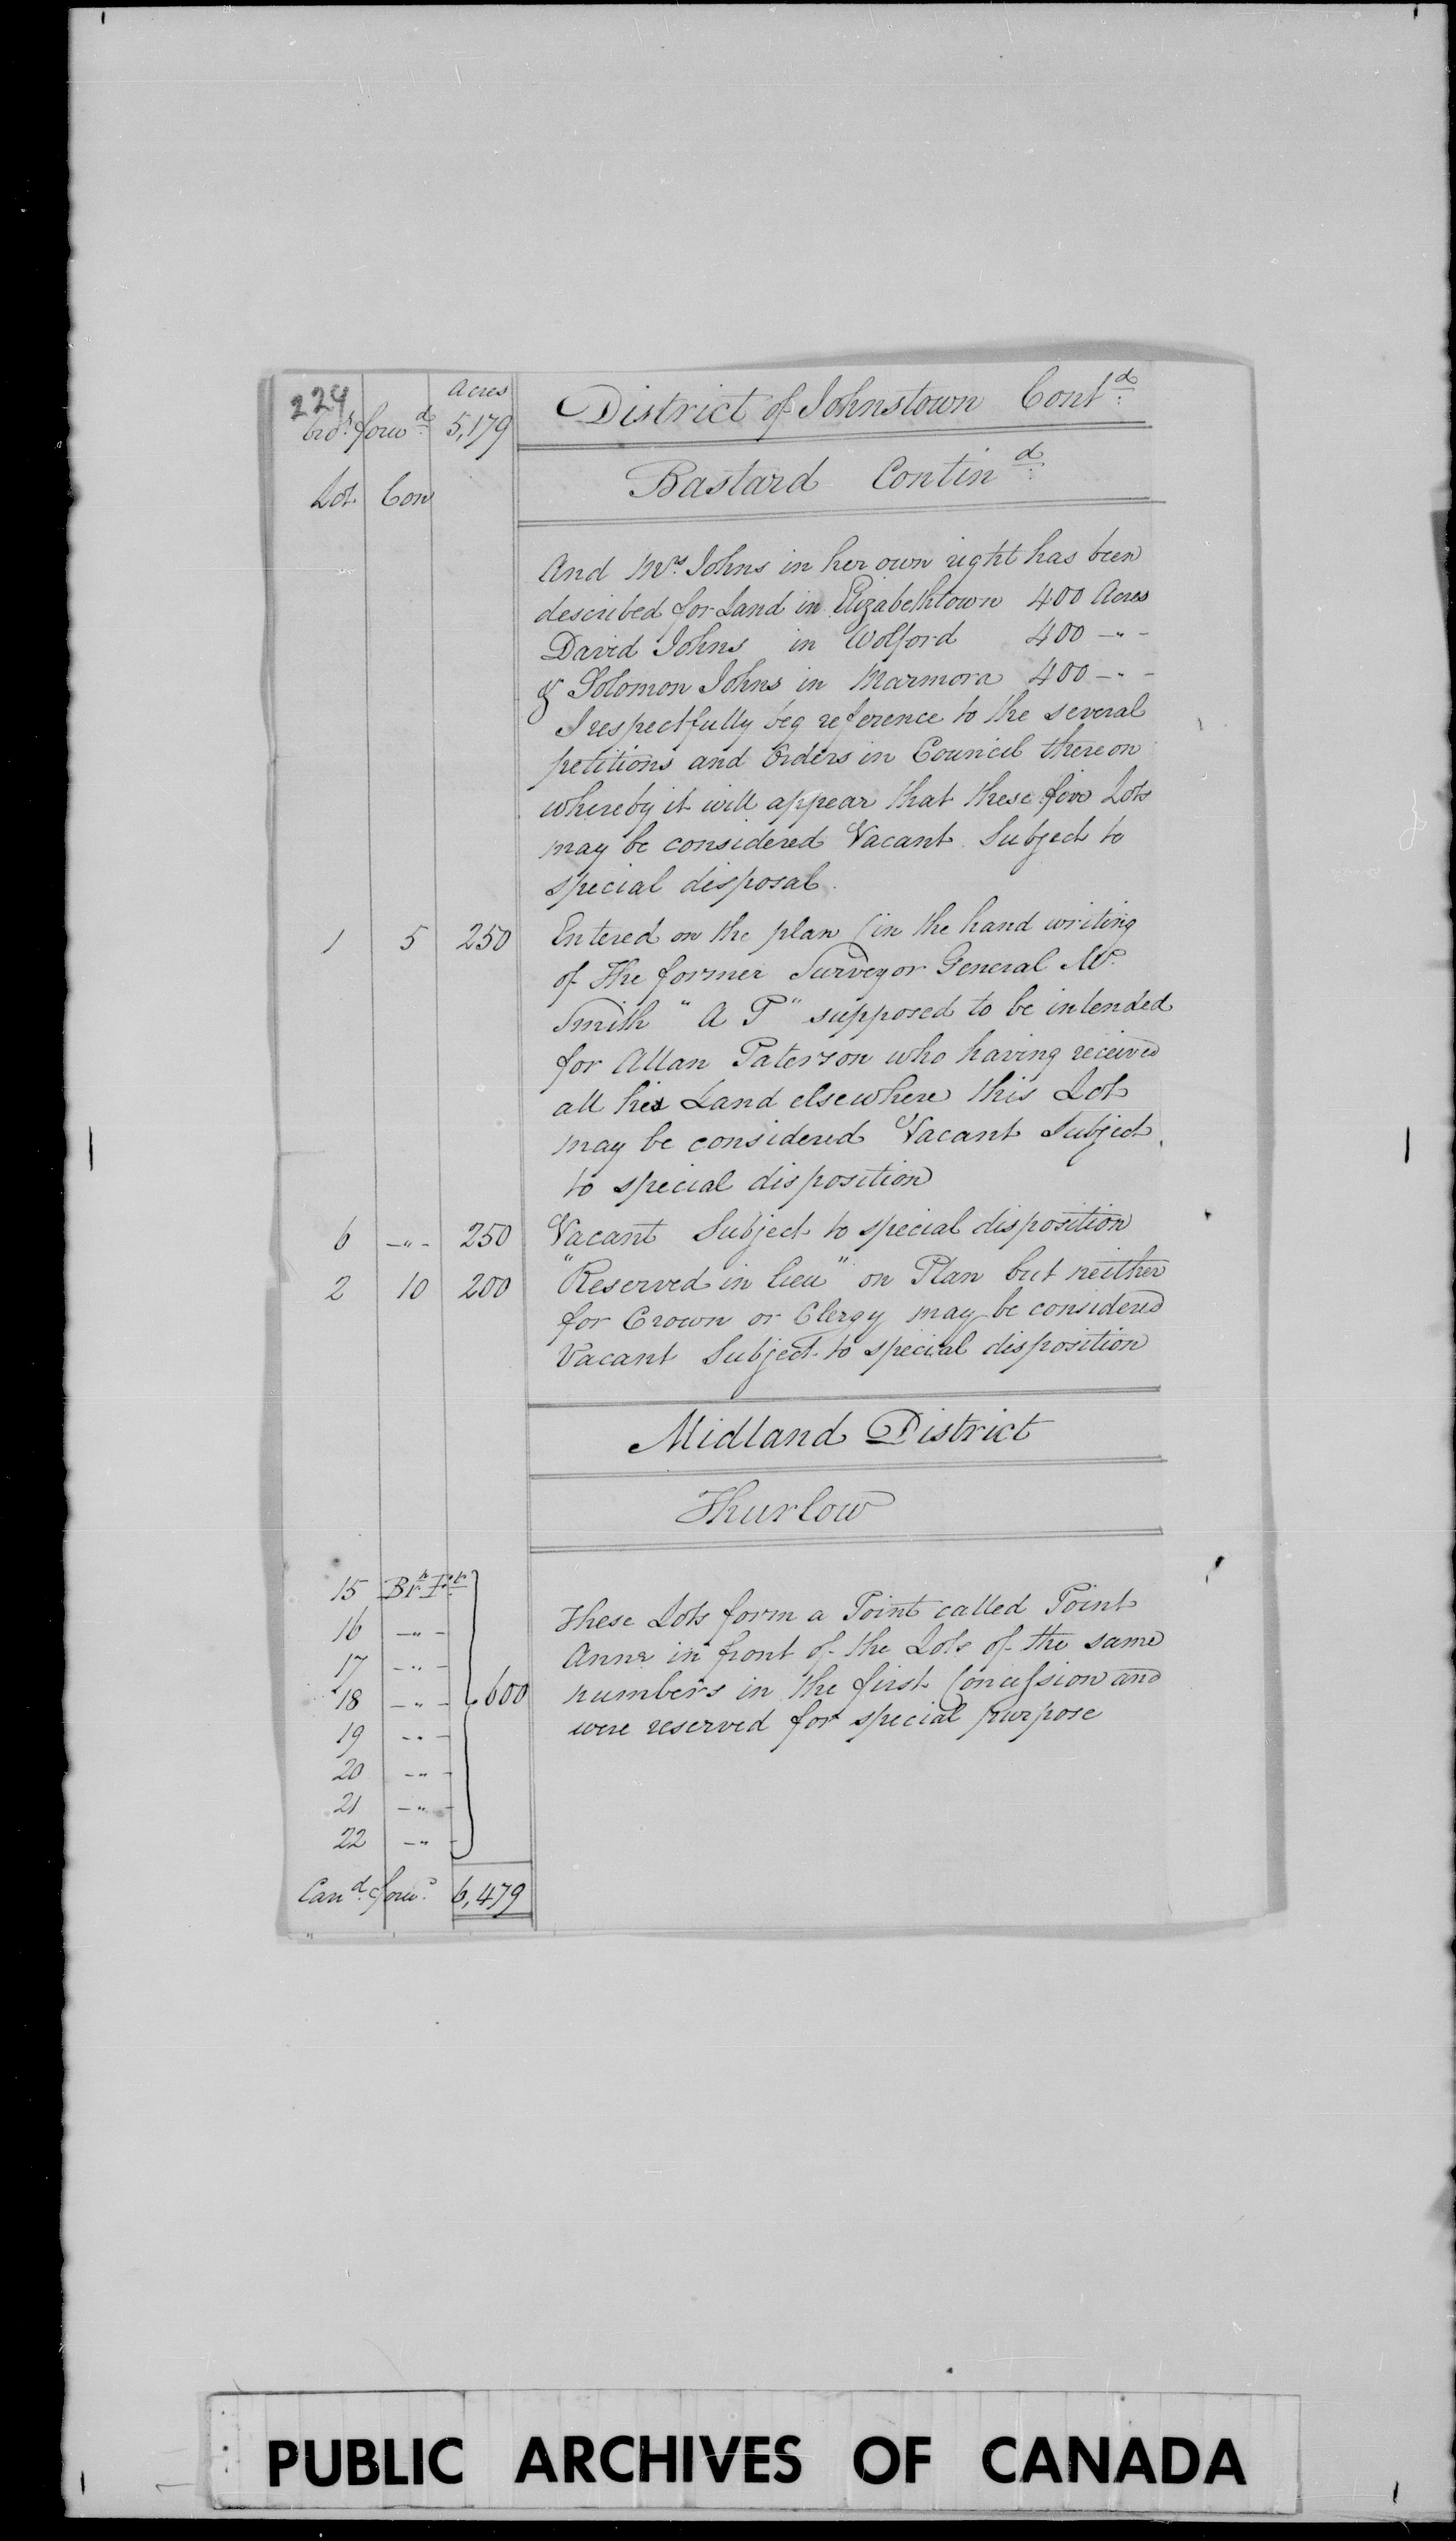 224
Acres
bro.t forw.d 5,179
District of Johnstown Cont.d
Lot Con
Bastard Contin.d
And Mrs. Johns in her own right has been
described for Land in Elizabethtown 400 Acres
David Johns in Wolford 400 - " -
& Solomon Johns in Marmora 400 - " -
I respectfully beg reference to the several
petitions and Orders in Council thereon
whereby it will appear that these five Lots
may be considered Vacant Subject to
special disposal.
1 5 250 Entered on the plan (in the hand writing
of the former Surveyor General Mr.
Smith " A P " supposed to be intended
for Allan Paterson who having received
all his Land elsewhere this Lot
may be considered Vacant Subject
to special disposition
6 - " - 250 Vacant Subject to special disposition
2 10 200 "Reserved in lieu" on Plan but neither
for Crown or Clergy may be considered
Vacant Subject to special disposition
Midland District
Thurlow
15 Bn Ft
16 - " -
17 - " -
18 - " - 600
19 - " -
20 - " -
21 - " -
22 - " -
These Lots form a Point called Point
Anne in front of the Lots of the same
numbers in the first Concession and
were reserved for special purpose
Carr.d forw.d 6,479
PUBLIC ARCHIVES OF CANADA